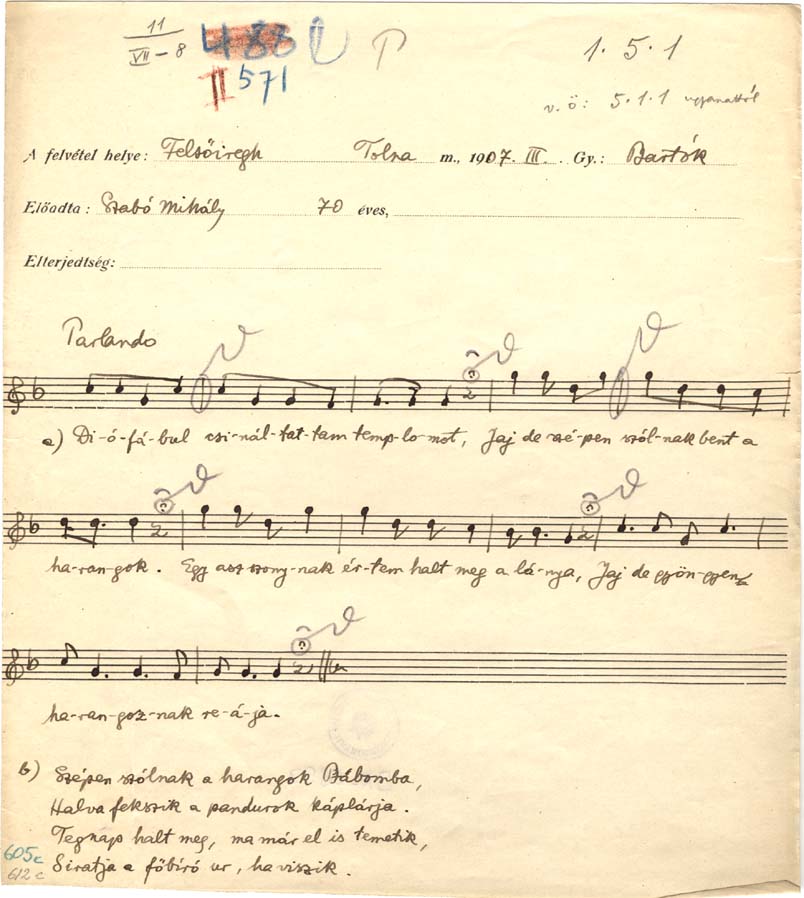 11
VII - 8
488
II 571
1. 5. 1
v. ö: 5.1.1 ugyanattól
A felvétel helye: Felsőiregh Tolna m., 1907. III. Gy.: Bartók
Előadta: Szabó Mihály 70 éves,
Elterjedtség:
Parlando
a) Di-ó-fá-bul csi-nál-tat-tam temp-lo-mot, Jaj de szé-pen szól-nak bent a
ha-ran-gok. Egy asz szony-nak ér-tem halt meg a lá-nya, Jaj de gyön-gyen
ha-ran-goz-nak re-á-ja.
b) Szépen szólnak a harangok Bábomba,
Halva fekszik a pandurok káplárja.
Tegnap halt meg, ma már el is temetik,
605c Siratja a főbíró ur, ha viszik.
612c